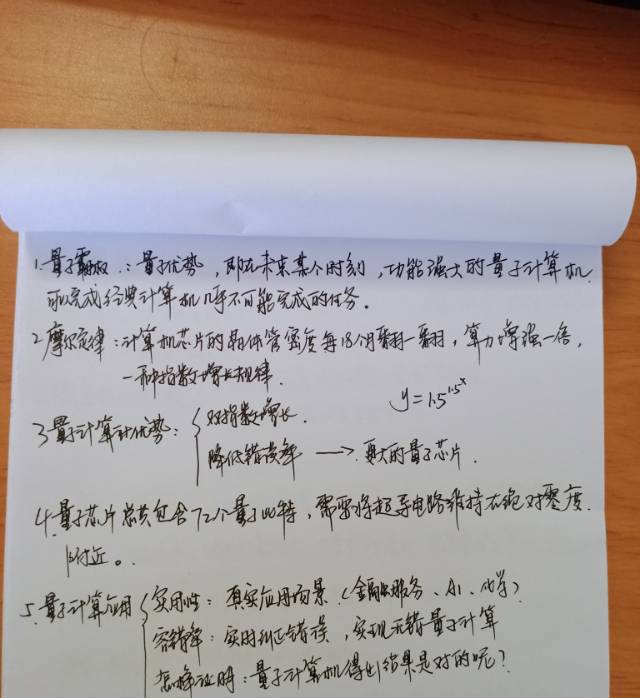 1.量子霸权：量子优势，即在未来某个时刻，功能强大的量子计算机
可以完成经典计算机几乎不可能完成的任务。
2.摩尔定律：计算机芯片的晶体管密度每18个月翻一翻，算力增强一倍，
一种指数增长规律.
y=1.5^1.5^x
3量子计算机优势：
双指数增长.
降低错误率 → 更大的量子芯片.
4.量子芯片总共包含72个量子比特，需要将超导电路维持在绝对零度
附近。
5.量子计算应用
实用性：真实应用场景（金融服务、AI、化学）
容错率：实时纠正错误，实现无错量子计算
怎样证明：量子计算机得出结果是对的呢？